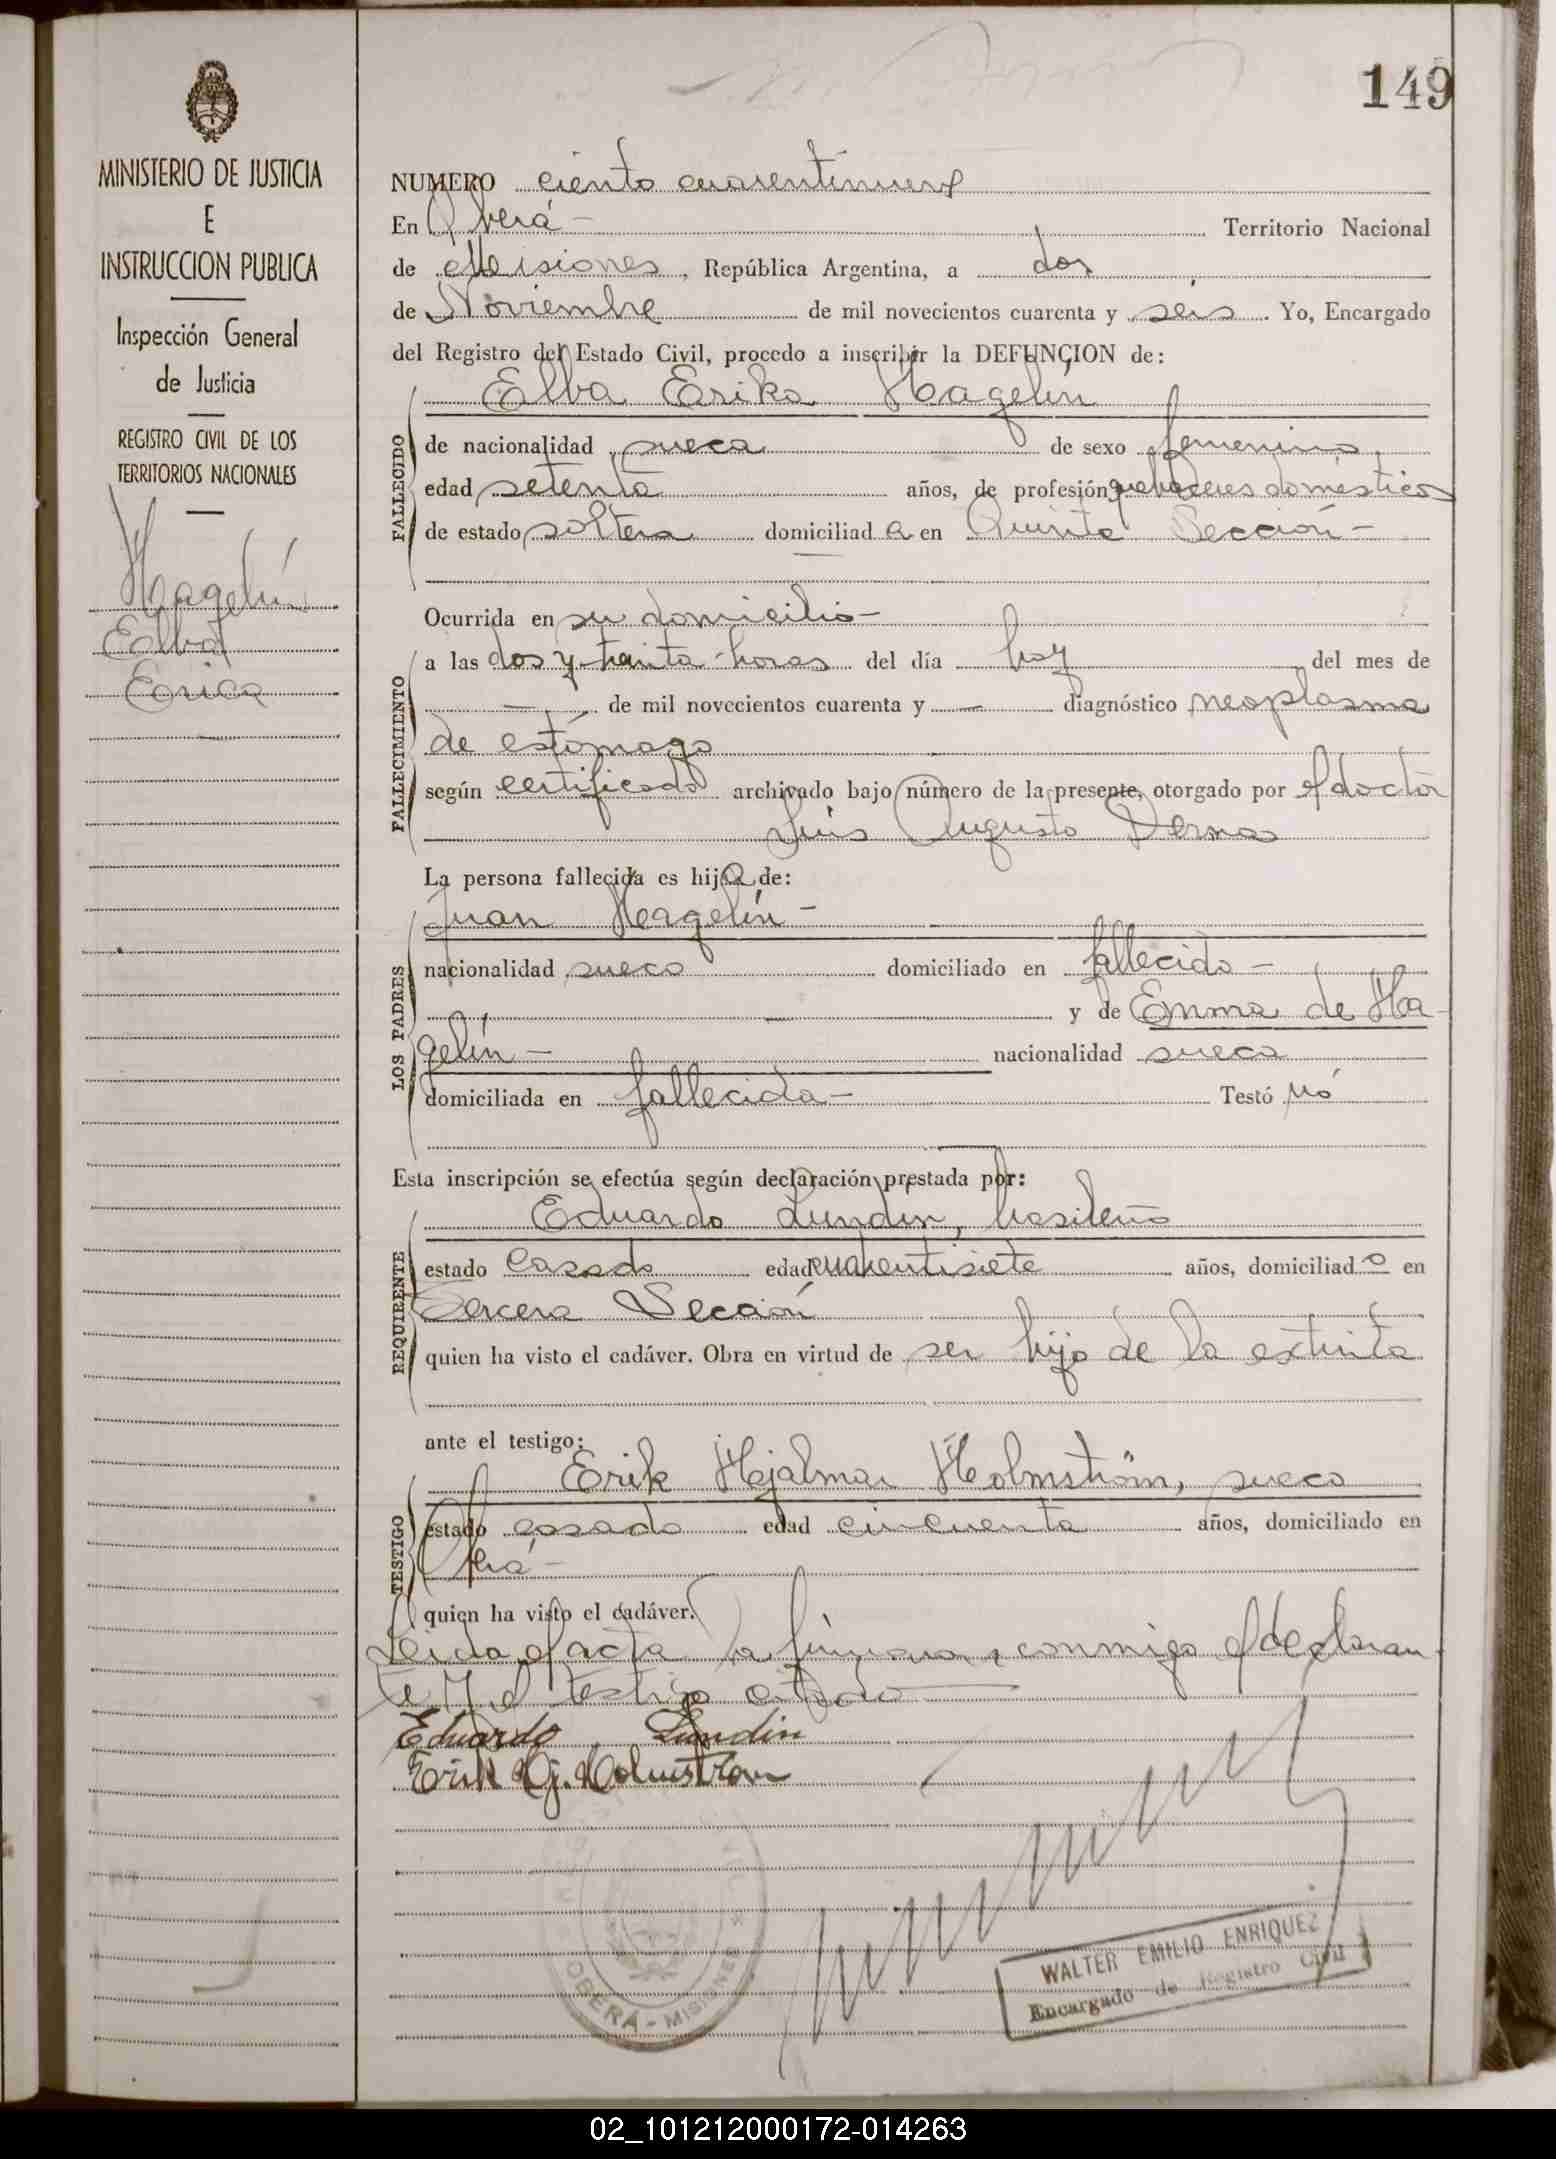 149
MINISTERIO DE JUSTICIA
E
INSTRUCCION PUBLICA
Inspección General
de Justicia
REGISTRO CIVIL DE LOS
TERRITORIOS NACIONALES
Hagelín
Elba
Erica
NUMERO ciento cuarentinueve
En Oberá - Territorio Nacional
de Misiones, República Argentina, a dos
de Noviembre de mil novecientos cuarenta y seis. Yo, Encargado
del Registro del Estado Civil, procedo a inscribir la DEFUNCION de:
Elba Erika Hagelín
FALLECIDO
de nacionalidad sueca de sexo femenino
edad setenta años, de profesión quehaceres domésticos
de estado soltera domiciliada en Quinta Sección -
Ocurrida en su domicilio -
FALLECIMIENTO
a las dos y treinta horas del día hoy del mes de
— de mil novecientos cuarenta y — diagnóstico neoplasma
de estómago
según certificado archivado bajo número de la presente, otorgado por el doctor
Luis Augusto Derna
La persona fallecida es hija de:
LOS PADRES
Juan Hagelín -
nacionalidad sueco domiciliado en fallecido -
— y de Emma de Ha-
gelín - nacionalidad sueca
domiciliada en fallecida - Testó nó
Esta inscripción se efectúa según declaración prestada por:
REQUIRENTE
Eduardo Lundin, brasileño
estado casado edad cuarentisiete años, domiciliado en
Tercera Sección
quien ha visto el cadáver. Obra en virtud de ser hijo de la extinta
ante el testigo:
TESTIGO
Erik Hjalmar Holmström, sueco
estado casado edad cincuenta años, domiciliado en
Oberá -
quien ha visto el cadáver.
Leida el acta la firmaron conmigo el declaran-
te y el testigo citado
Eduardo Lundin
Erik Hj. Holmström
OBERÁ - MISIONES
WALTER EMILIO ENRIQUEZ
Encargado de Registro Civil
02_101212000172-014263